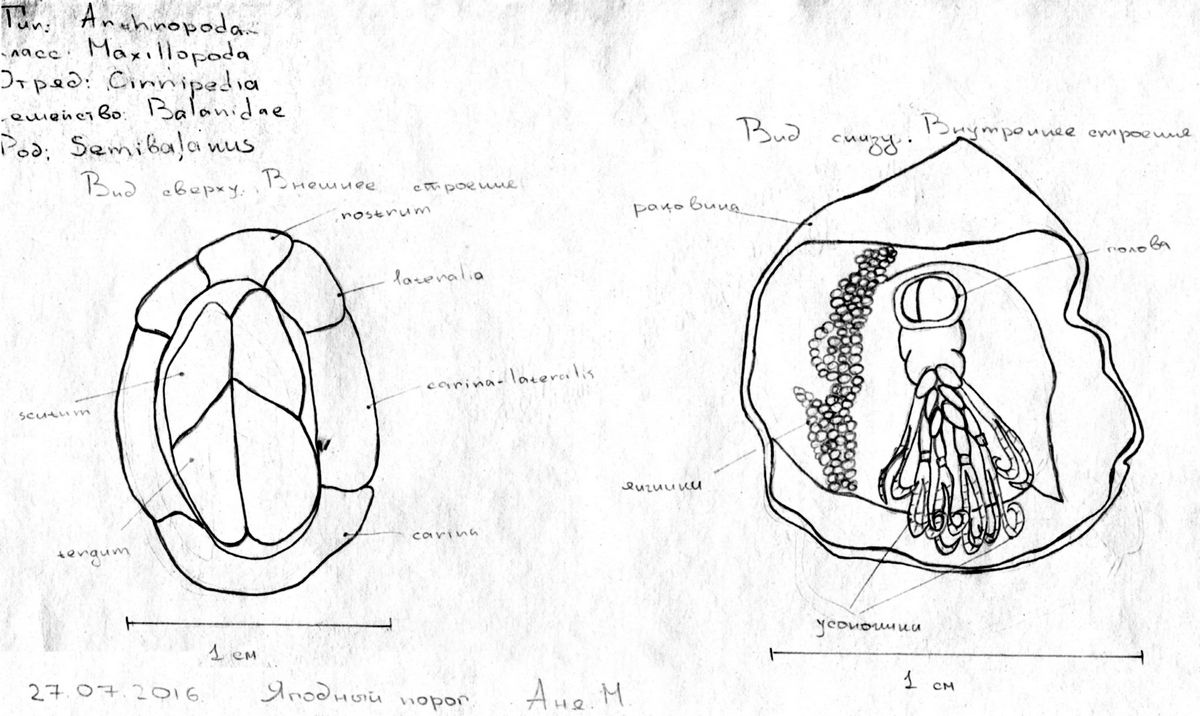 Тип: Arthropoda
ласс: Maxillopoda
Отряд: Cirripedia
емейство: Balanidae
Род: Semibalanus
Вид сверху. Внешнее строение
rostrum
lateralia
carina-lateralis
scutum
tergum
carina
1 см
Вид снизу. Внутреннее строение
раковина
голова
яички
усоножки
1 см
27.07.2016 Ягодный порог. Аня.М.